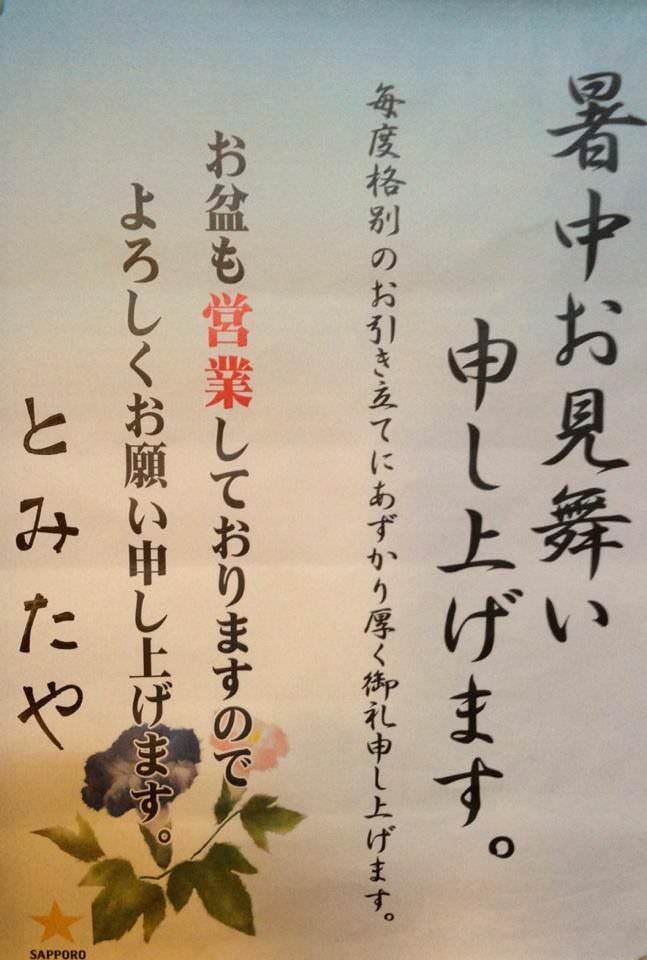 暑中お見舞い
申し上げます。
毎度格別のお引き立てにあずかり厚く御礼申し上げます。
お盆も営業しておりますので
よろしくお願い申し上げます。
とみたや
SAPPORO